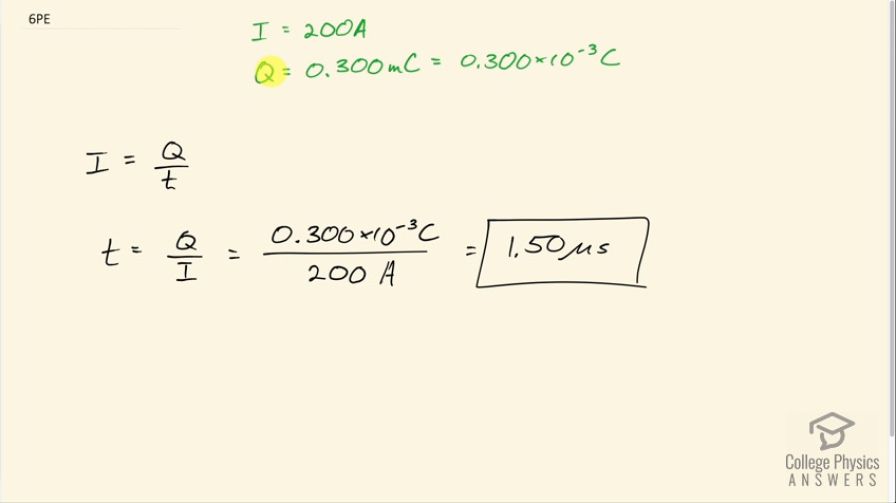 6PE
I = 200A
Q = 0.300mC = 0.300×10⁻³ C
I = Q/t
t = Q/I = 0.300×10⁻³C / 200 A = 1.50μs
College Physics
ANSWERS